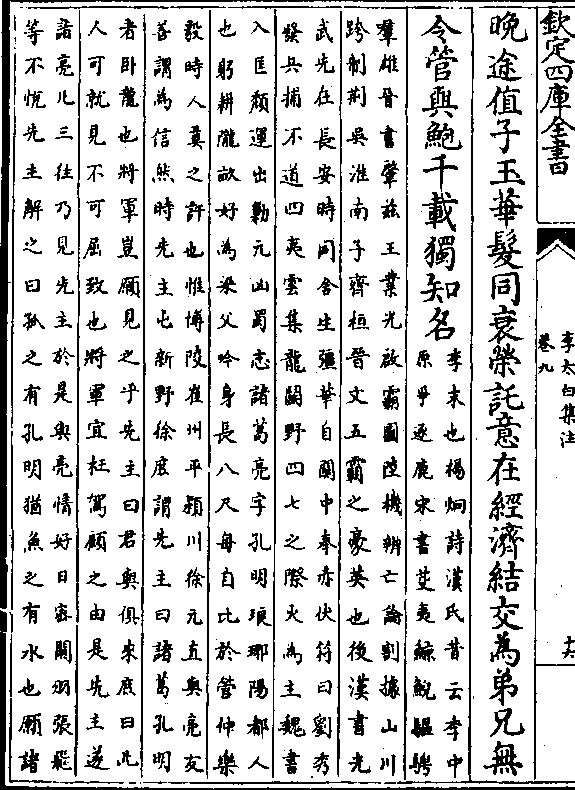 欽定四庫全書
李太白集注
卷九
十六
晚途值子玉華髮同衰榮託意在經濟結交為弟兄無
令管與鮑千載獨知名
季末也楊炯詩漢氏昔云季中
原爭逐鹿宋書芟夷鯨鯢驅騁
羣雄晉書肇兹王業光啟霸圖陸機辨亡論割據山川
跨制荆吳淮南子齊桓晉文五霸之豪英也後漢書光
武先在長安時同舍生彊華自關中奉赤伏符曰劉秀
發兵捕不道四夷雲集龍鬭野四七之際火為主魏書
入匡頽運出勦元凶蜀志諸葛亮字孔明琅琊陽都人
也躬耕隴畝好為梁父吟身長八尺每自比於管仲樂
毅時人莫之許也惟博陵崔州平潁川徐元直與亮友
善謂為信然時先主屯新野徐庶謂先主曰諸葛孔明
者卧龍也將軍豈願見之乎先主曰君與俱來庶曰此
人可就見不可屈致也將軍宜枉駕顧之由是先主遂
詣亮凡三往乃見先主於是與亮情好日密關羽張飛
等不悦先主解之曰孤之有孔明猶魚之有水也願諸